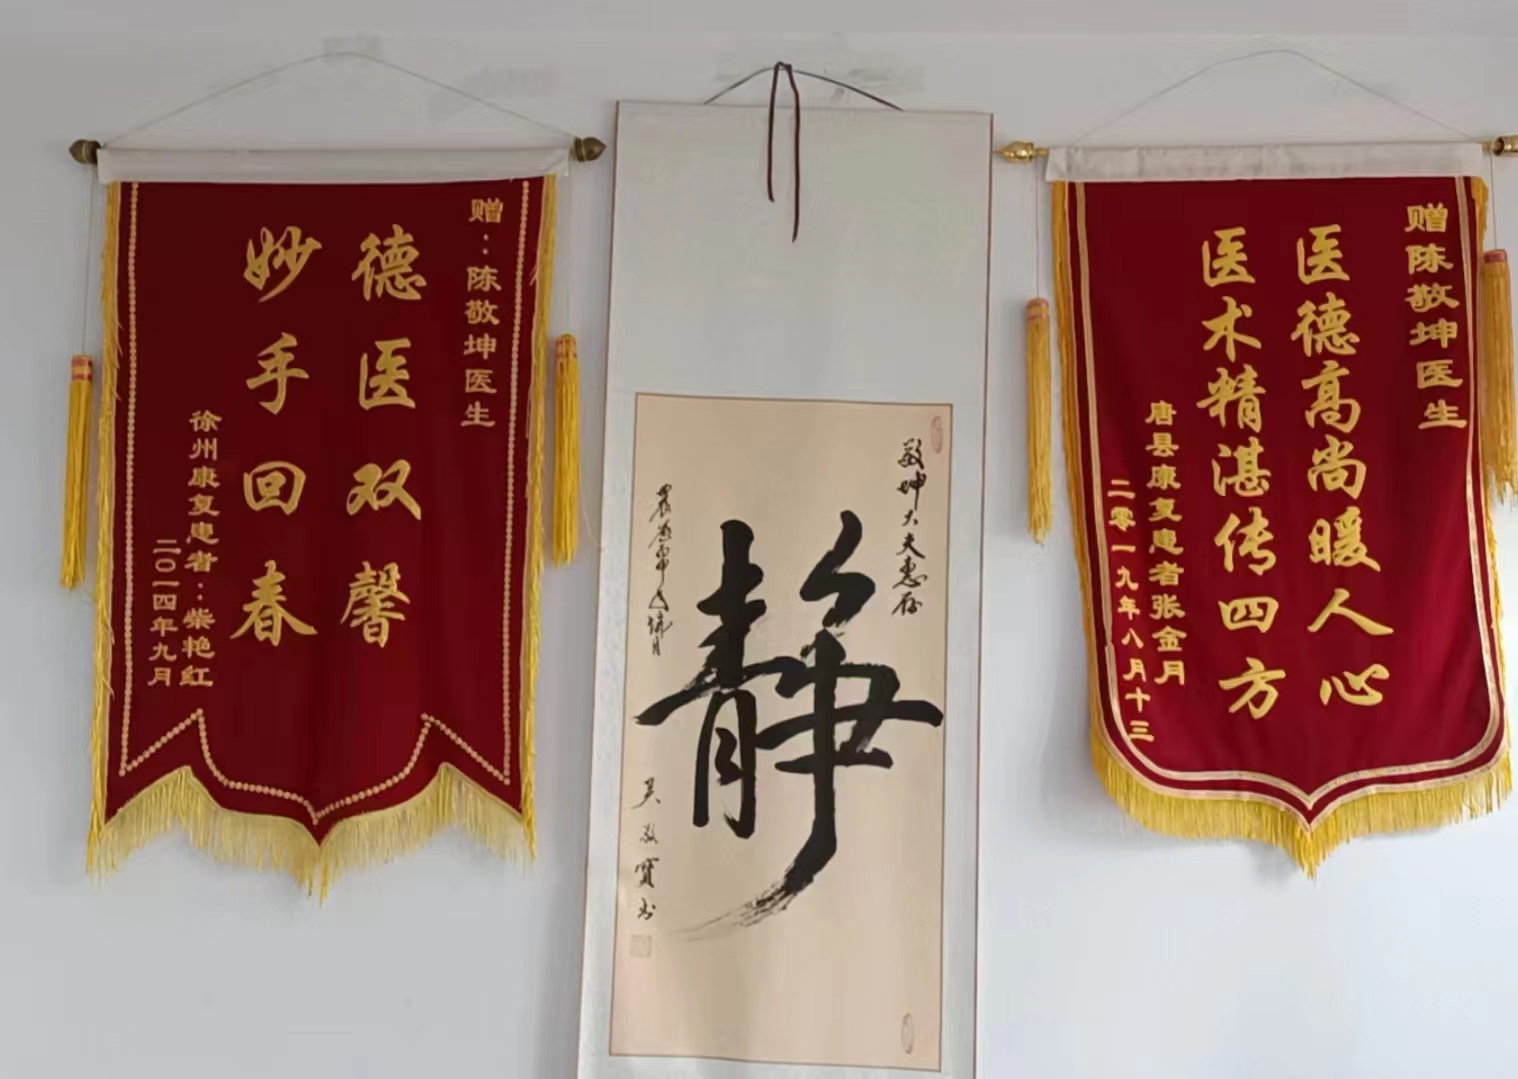 赠：陈敬坤医生
德医双馨
妙手回春
徐州康复患者：柴艳红
二〇一四年九月
敬坤大夫惠存
静
吴敬宝书
赠陈敬坤医生
医德高尚暖人心
医术精湛传四方
唐县康复患者张金月
二零一九年八月十三